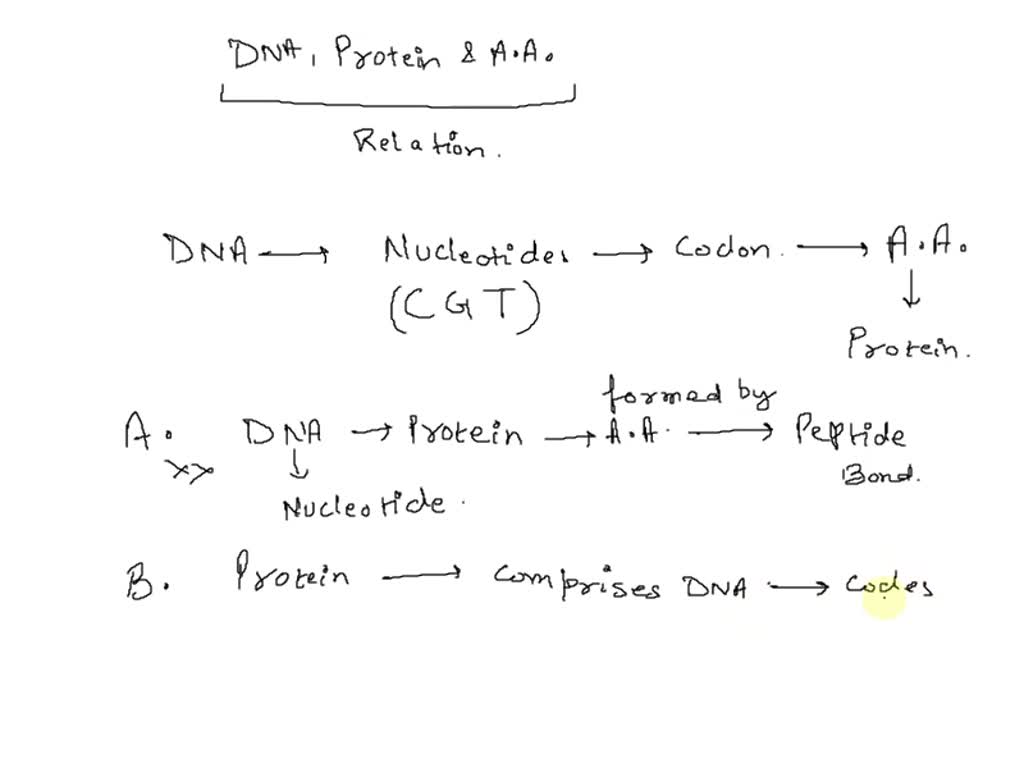 DNA, Protein & A.A.
Relation.
DNA → Nucleotides → Codon. → A.A.
(CGT) ↓
Protein.
formed by
A. DNA → Protein → A.A. → Peptide
xx ↓ Bond.
Nucleotide.
B. Protein → Comprises DNA → Codes